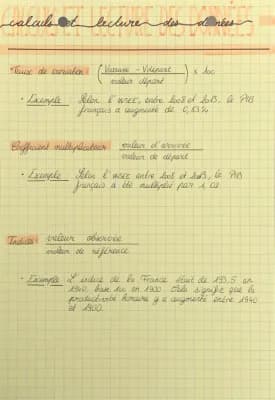 CALCULS ET LECTURE DES DONNÉES
calculs et lecture des données
Taux de variation (Varrivée - Vdépart / valeur départ) x 100
• Exemple : Selon l'INSEE, entre 2008 et 2013, le PIB
français a augmenté de 0,83%
Coefficient multiplicateur valeur d'arrivée
valeur de départ
• Exemple : Selon l'INSEE entre 2008 et 2013, le PIB
français a été multiplié par 1.03
Indice valeur observée
valeur de référence
• Exemple : L'indice de la France était de 193.5 en
1940, base 100 en 1900. Cela signifie que la
productivité horaire y a augmenté entre 1940
et 1900.